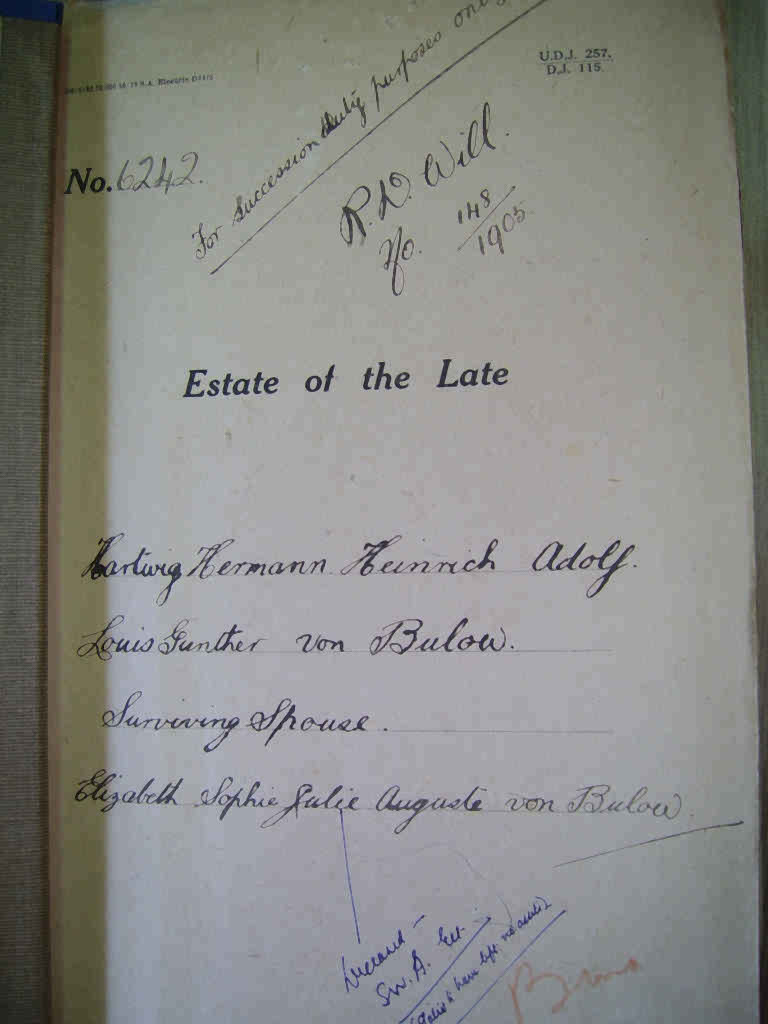 U.D.J. 257.
D.J. 115.
No. 6242.
For Succession duty purposes only
R.D. Will.
No. 148/1905.
Estate of the Late
Hartwig Hermann Heinrich Adolf.
Louis Gunther von Bulow.
Surviving Spouse.
Elizabeth Sophie Julie Auguste von Bulow.
Deceased -
Sw. A. Est.